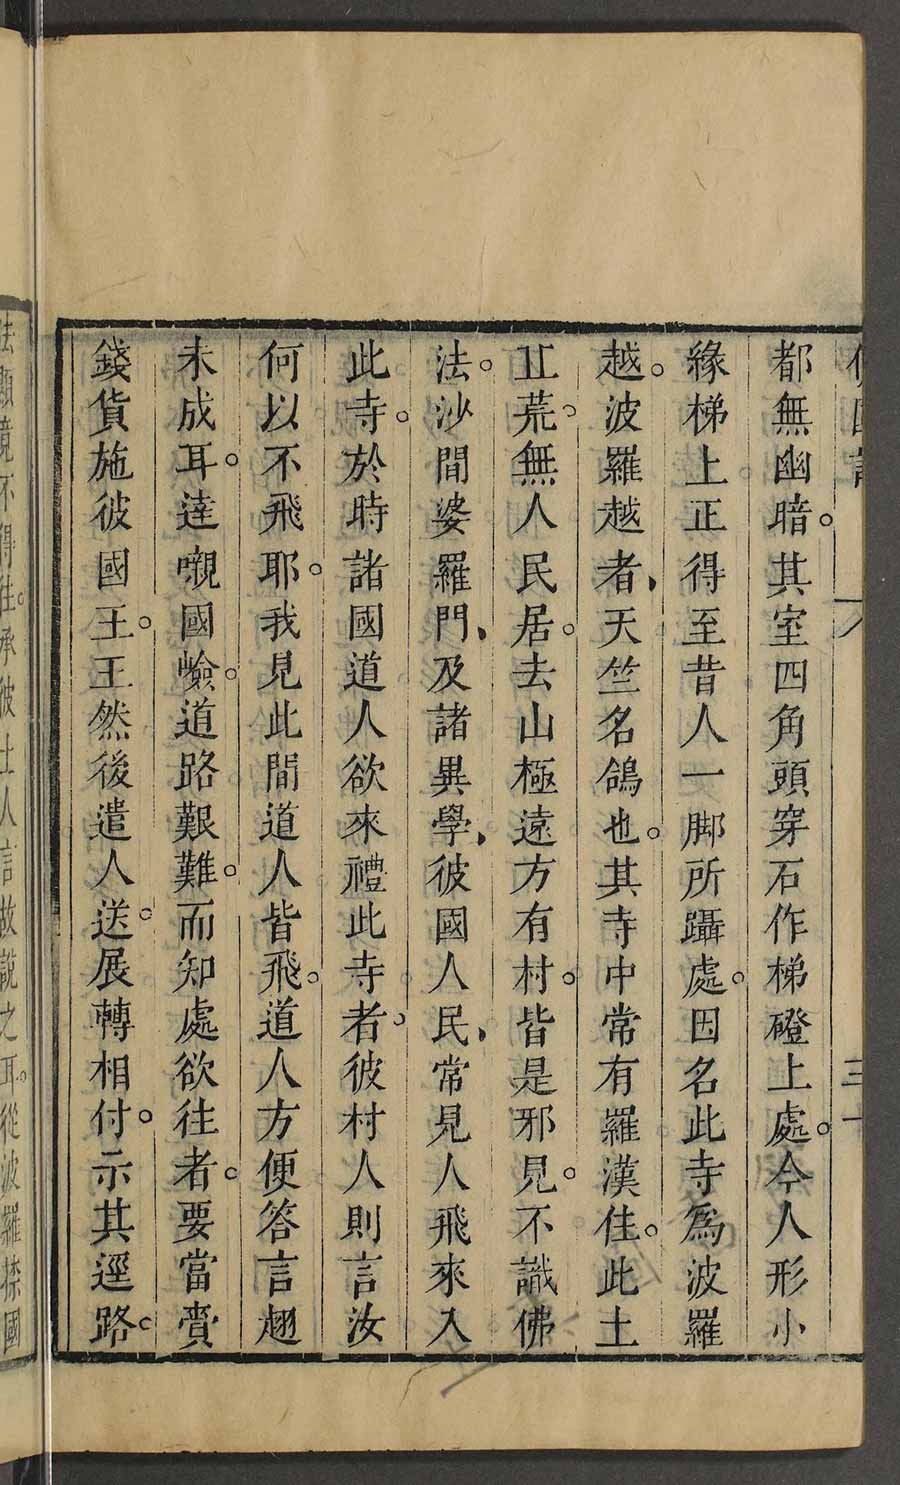 佛國記 八 三十
都無幽暗。其室四角頭穿石作梯磴上處。今人形小
緣梯上正得至昔人一脚所躡處。因名此寺爲波羅
越。波羅越者、天竺名鴿也。其寺中常有羅漢住。此土
丘荒。無人民居。去山極遠方有村。皆是邪見。不識佛
法。沙門婆羅門、及諸異學、彼國人民、常見人飛來入
此寺。於時諸國道人欲來禮此寺者。彼村人則言汝
何以不飛耶。我見此間道人皆飛。道人方便答言翅
未成耳。達嚫國嶮。道路艱難。而知處欲往者。要當賫
錢貨施彼國王。王然後遣人送。展轉相付。示其逕路。
法顯竟不得往。承彼土人言故說之耳。從波羅㮈國